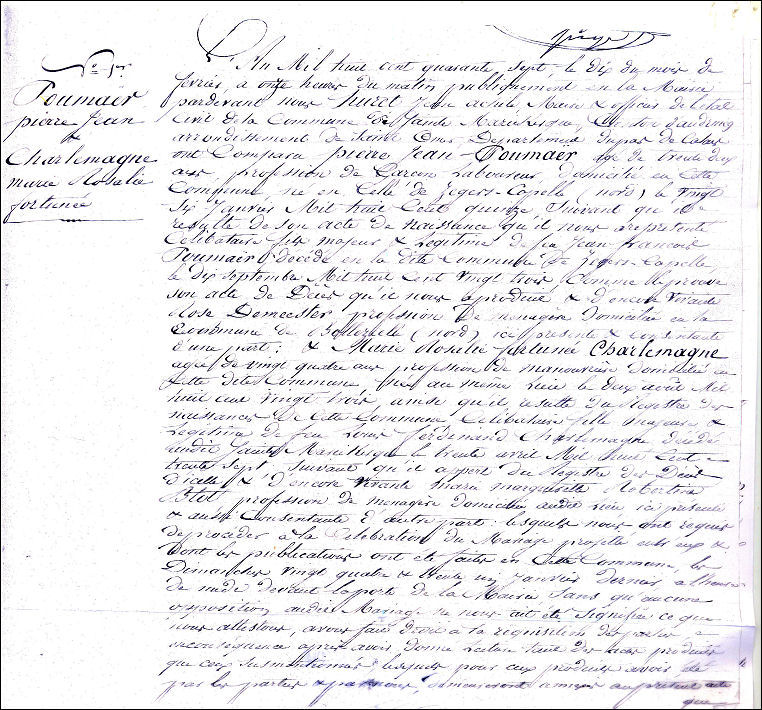 N° 1er
Toumaër
pierre Jean
&
Charlemagne
marie Rosalie
fortunée
L'An Mil huit cent quarante Sept, le dix du mois de
février, à onze heures du matin publiquement en la Mairie
pardevant nous huret Maire & officier de l'état
Civil de la Commune de Sainte Mariekerque, Canton d'audruicq
arrondissement de Département du pas de Calais
ont Comparu pierre Jean Toumaër agé de trente deux
ans, profession de Garçon Laboureur domicilié en Cette
Commune né en Celle de Zegers-Capelle (nord) le vingt
Six Janvier Mil huit Cent quinze Suivant qu'il
résulte de son acte de naissance qu'il nous a représenté
Célibataire fils majeur & Légitime de feu Jean francois
Toumaër décédé en la dite Commune de Zegers-Capelle
le dix septembre Mil huit Cent vingt trois, Comme le prouve
son acte de Décès qu'il nous a produit & d'encore vivante
Rose Demeester profession de ménagère domiciliée en la
Commune de Bollezeele (nord) ici présente & consentante
d'une part : & Marie Rosalie fortunée Charlemagne
agée de vingt quatre ans profession de manouvrière domiciliée en
Cette dite Commune, née au même lieu le deux août Mil
huit cent vingt trois, ainsi qu'il résulte du Registre des
naissances de Cette Commune, Célibataire fille majeure &
Légitime de feu Louis ferdinand Charlemagne décédé
audit Sainte Mariekerque le trente avril Mil huit Cent
trente Sept, Suivant qu'il appert du Registre des Décès
d'icelle & d'encore vivante Marie marguerite Robertine
Blot profession de ménagère domiciliée audit lieu ici présente
& aussi Consentante d'autre part : lesquels nous ont requis
de procéder à la Célébration du Mariage projetté entr'eux &
dont les publications ont été faites en Cette Commune, les
Dimanches vingt quatre & trente un Janvier dernier à l'heure
de midi devant la porte de la Mairie Sans qu'aucune
opposition audit Mariage ne nous ait été Signifiée ce que
nous attestons, avons fait droit à la réquisition des parties
inconséquence après avoir donné Lecture tant des actes produits
que ceux Susmentionnés lesquels pour ceux produits avoir été
par les parties & par nous, demeureront annexés au présent acte
que